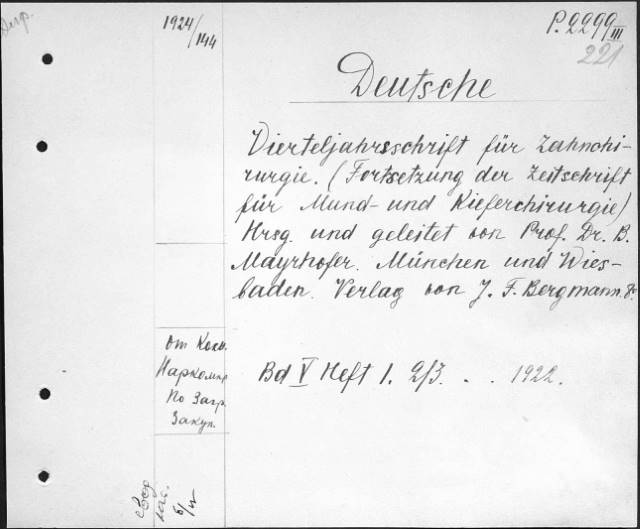 Dup.
1924/144
P.2299/III
221
Deutsche
Vierteljahrsschrift für Zahnchi-
rurgie. (Fortsetzung der Zeitschrift
für Mund- und Kieferchirurgie)
Hrsg. und geleitet von Prof. Dr. B.
Mayrhofer. München und Wies-
baden. Verlag von J. F. Bergmann. 8º
от Ком.
Наркомпр
По Загр.
Закуп.
Bd V Heft 1. 2/3. . . 1922.